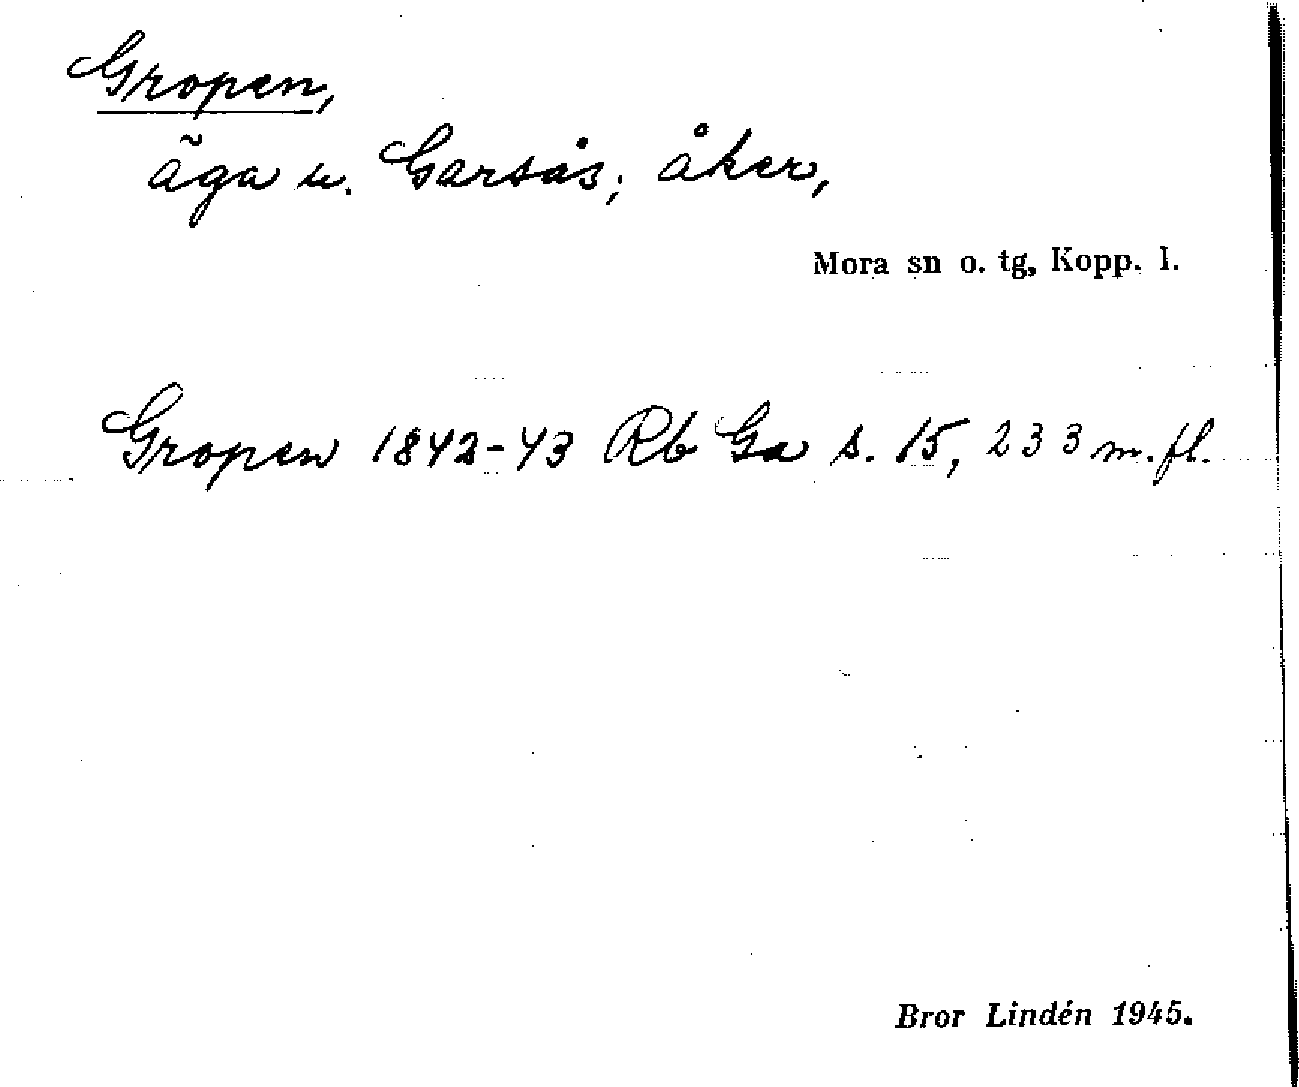 Gropen,
äga u. Garsås; åker,
Mora sn o. tg, Kopp. l.
Gropen 1842-43 Rb Ga s. 15, 233 m. fl.
Bror Lindén 1945.